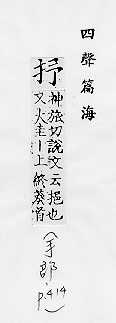 四聲篇海
抒
神旅切說文云挹也
又大圭丨上終葵首
(手部,
p.414)